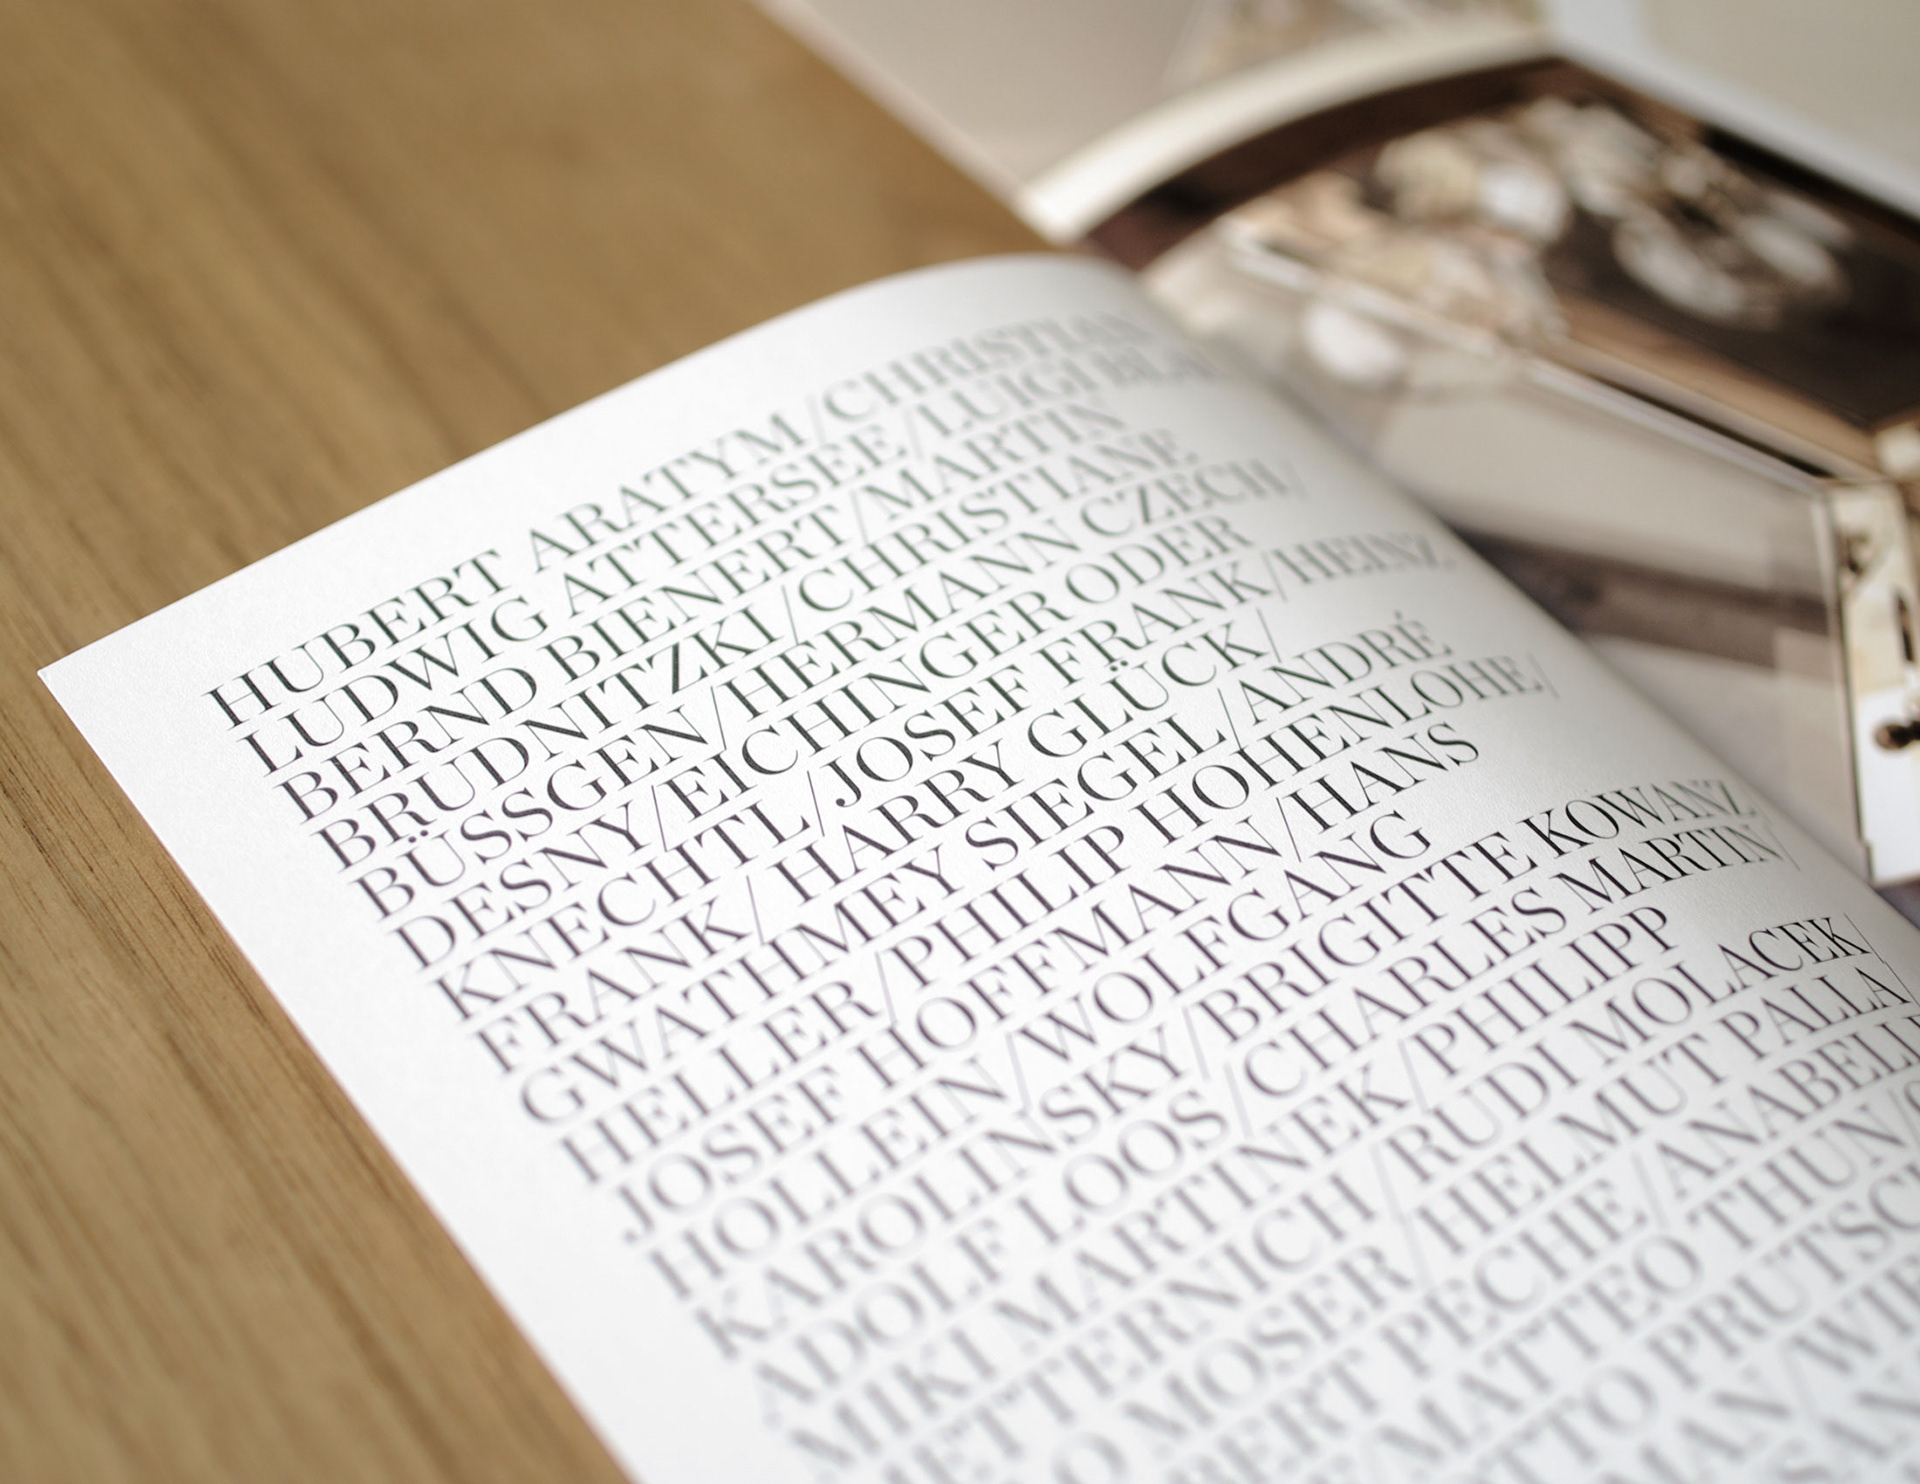 HUBERT ARATYM/CHRISTIAN
LUDWIG ATTERSEE/LUIGI
BERND BIENERT/MARTIN
BRUDNITZKI/CHRISTIANE
BÜSSGEN/HERMANN CZECH/
DESNY/EICHINGER ODER
KNECHTL/JOSEF FRANK/HEINZ
FRANK/HARRY GLÜCK/
GWATHMEY SIEGEL/ANDRÉ
HELLER/PHILIP HOHENLOHE/
JOSEF HOFFMANN/HANS
HOLLEIN/WOLFGANG
KAROLINSKY/BRIGITTE KOWANZ
ADOLF LOOS/CHARLES MARTIN/
MIKI MARTINEK/PHILIPP
METTERNICH/RUDI MOLACEK/
MOSER/HELMUT PALLA/
PECHE/
MATTEO THUN/